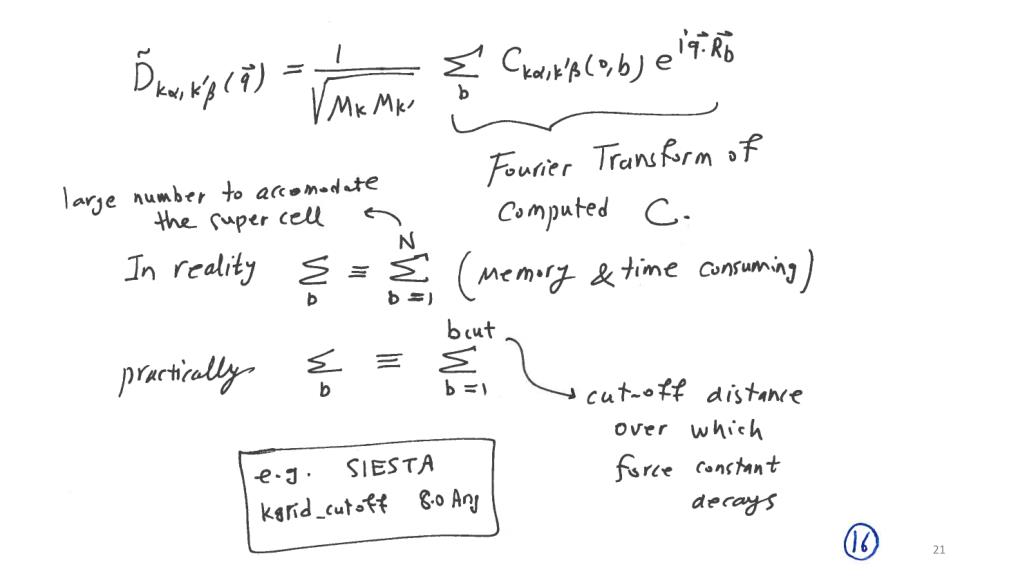 D̃kα,k'β(q⃗) = 1/√(Mk Mk') Σ_b Ckα,k'β(0,b) e^{iq⃗·R⃗b}
Fourier Transform of
Computed C.
large number to accomodate
the super cell
In reality Σ_b ≡ Σ_{b=1}^{N} (memory & time consuming)
practically Σ_b ≡ Σ_{b=1}^{bcut}
cut-off distance
over which
force constant
decays
e.g. SIESTA
kgrid_cutoff 8.0 Ang
16
21